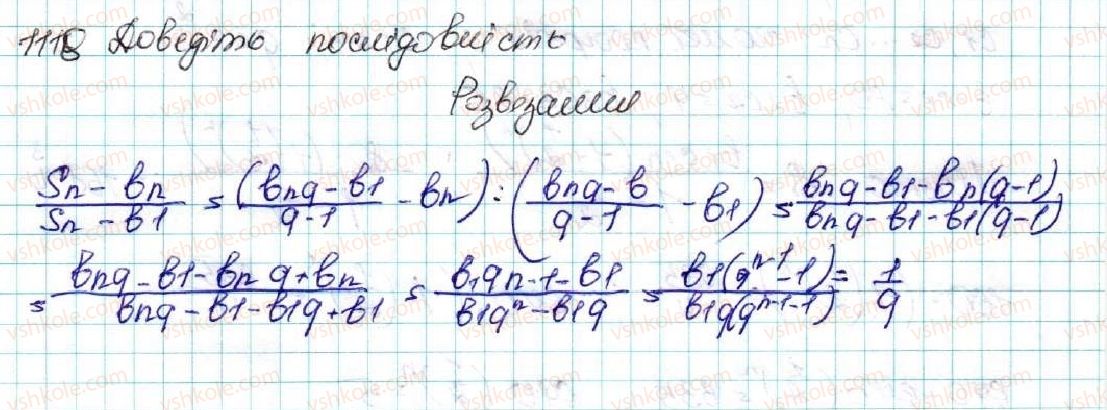 1118 Доведіть послідовність
Розвезання
Sn - bn / Sn - b1 = (bnq - b1 / q - 1 - bn) : (bnq - b / q - 1 - b1) = bnq - b1 - bn(q-1) / bnq - b1 - b1(q-1)
= bnq - b1 - bn q + bn / bnq - b1 - b1q + b1 = b1qn-1 - b1 / b1q^n - b1q = b1(q^n-1 - 1) / b1q(q^n-1 - 1) = 1 / q